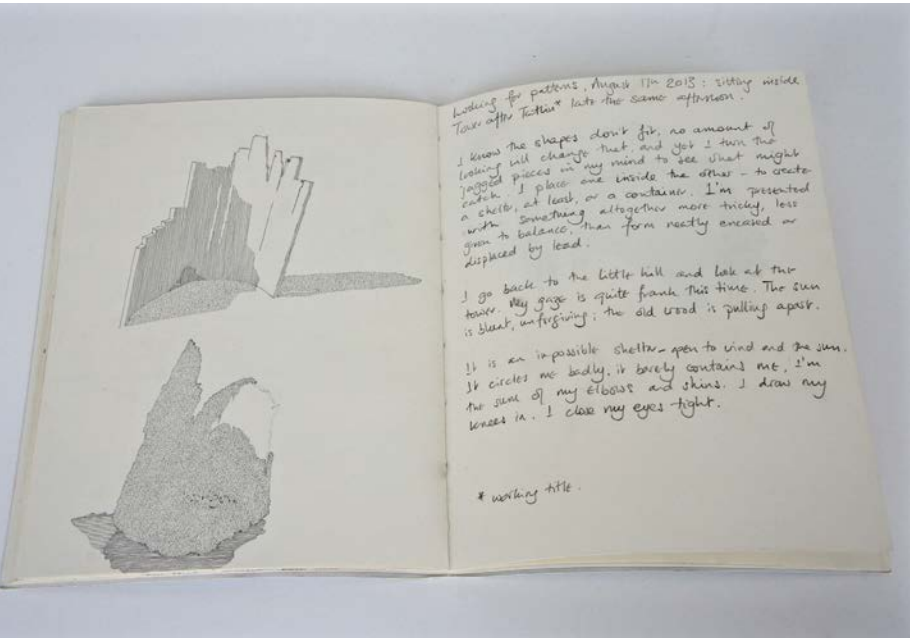 Looking for patterns, August 17th 2013: sitting inside
Tower after Tatlin* late the same afternoon.
I know the shapes don't fit, no amount of
looking will change that, and yet I turn the
jagged pieces in my mind to see what might
catch. I place one inside the other - to create
a shelter, at least, or a container. I'm presented
with something altogether more tricky, less
given to balance, than form neatly encased or
displaced by lead.
I go back to the little hill and look at the
tower. My gaze is quite frank this time. The sun
is blunt, unforgiving; the old wood is pulling apart.
It is an impossible shelter - open to wind and the sun.
It circles me badly, it barely contains me, I'm
the sum of my elbows and shins. I draw my
knees in. I close my eyes tight.
* working title.